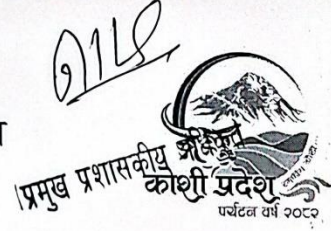 प्रमुख प्रशासकीय अधिकृत
कोशी प्रदेश
पर्यटन वर्ष २०८२